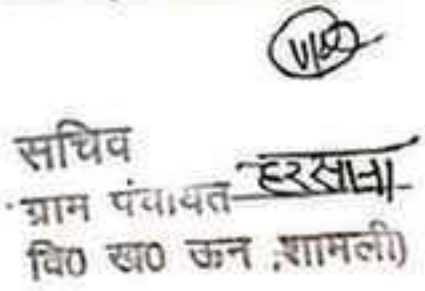 सचिव
ग्राम पंचायत हरसाना
वि0 ख0 ऊन ,शामली)